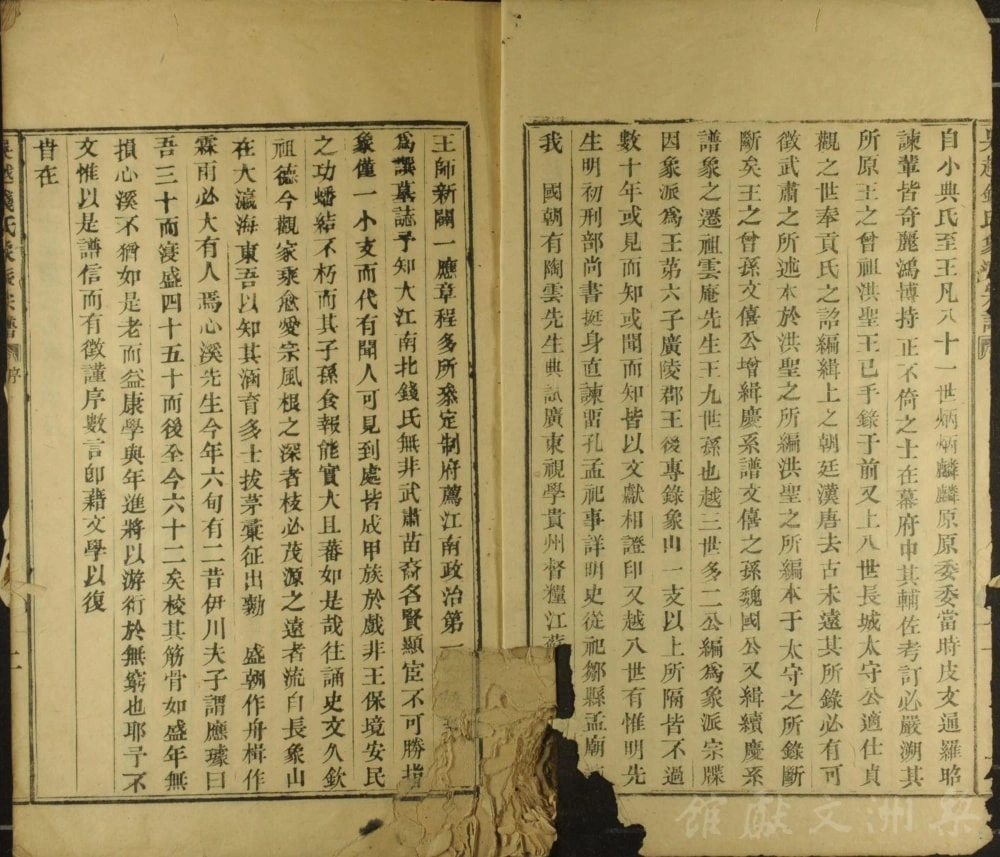 自小典氏至王凡八十一世炳炳麟麟原原委委當時皮文通羅昭
諫輩皆奇麗鴻博持正不倚之士在幕府中其輔佐考訂必嚴溯其
所原王之曾祖洪聖王已手錄于前又上八世長城太守公適仕貞
觀之世奉貢氏之詔編緝上之朝廷漢唐去古未遠其所錄必有可
徵武肅之所述本於洪聖之所編洪聖之所編本于太守之所錄斷
斷矣王之曾孫文僖公增緝慶系譜文僖之孫魏國公又緝續慶系
譜象之遷祖雲庵先生王九世孫也越三世多二公編爲象派宗牒
因象派爲王第六子廣陵郡王後專錄象山一支以上所隔皆不過
數十年或見而知或聞而知皆以文獻相證印又越八世有惟明先
生明初刑部尚書挺身直諫畱孔孟祀事詳明史從祀鄒縣孟廟
我 國朝有陶雲先生典試廣東視學貴州督糧江蘇
王師新闢一應章程多所叅定制府薦江南政治第一
爲譔墓誌予知大江南北錢氏無非武肅苗裔名賢顯宦不可勝指
象僅一小支而代有聞人可見到處皆成甲族於戲非王保境安民
之功蟠結不朽而其子孫食報能實大且蕃如是哉往誦史文久欽
祖德今觀家乘愈愛宗風根之深者枝必茂源之遠者流自長象山
在大瀛海東吾以知其涵育多士拔茅彙征出勷 盛朝作舟楫作
霖雨必大有人焉心溪先生今年六旬有二昔伊川夫子謂應璩曰
吾三十而浸盛四十五十而後至今六十二矣校其筋骨如盛年無
損心溪不猶如是老而益康學與年進將以游衍於無窮也耶予不
文惟以是譜信而有徵謹序數言卽藉文學以復
旹在
吳越錢氏象派宗譜 序
梨洲文獻館